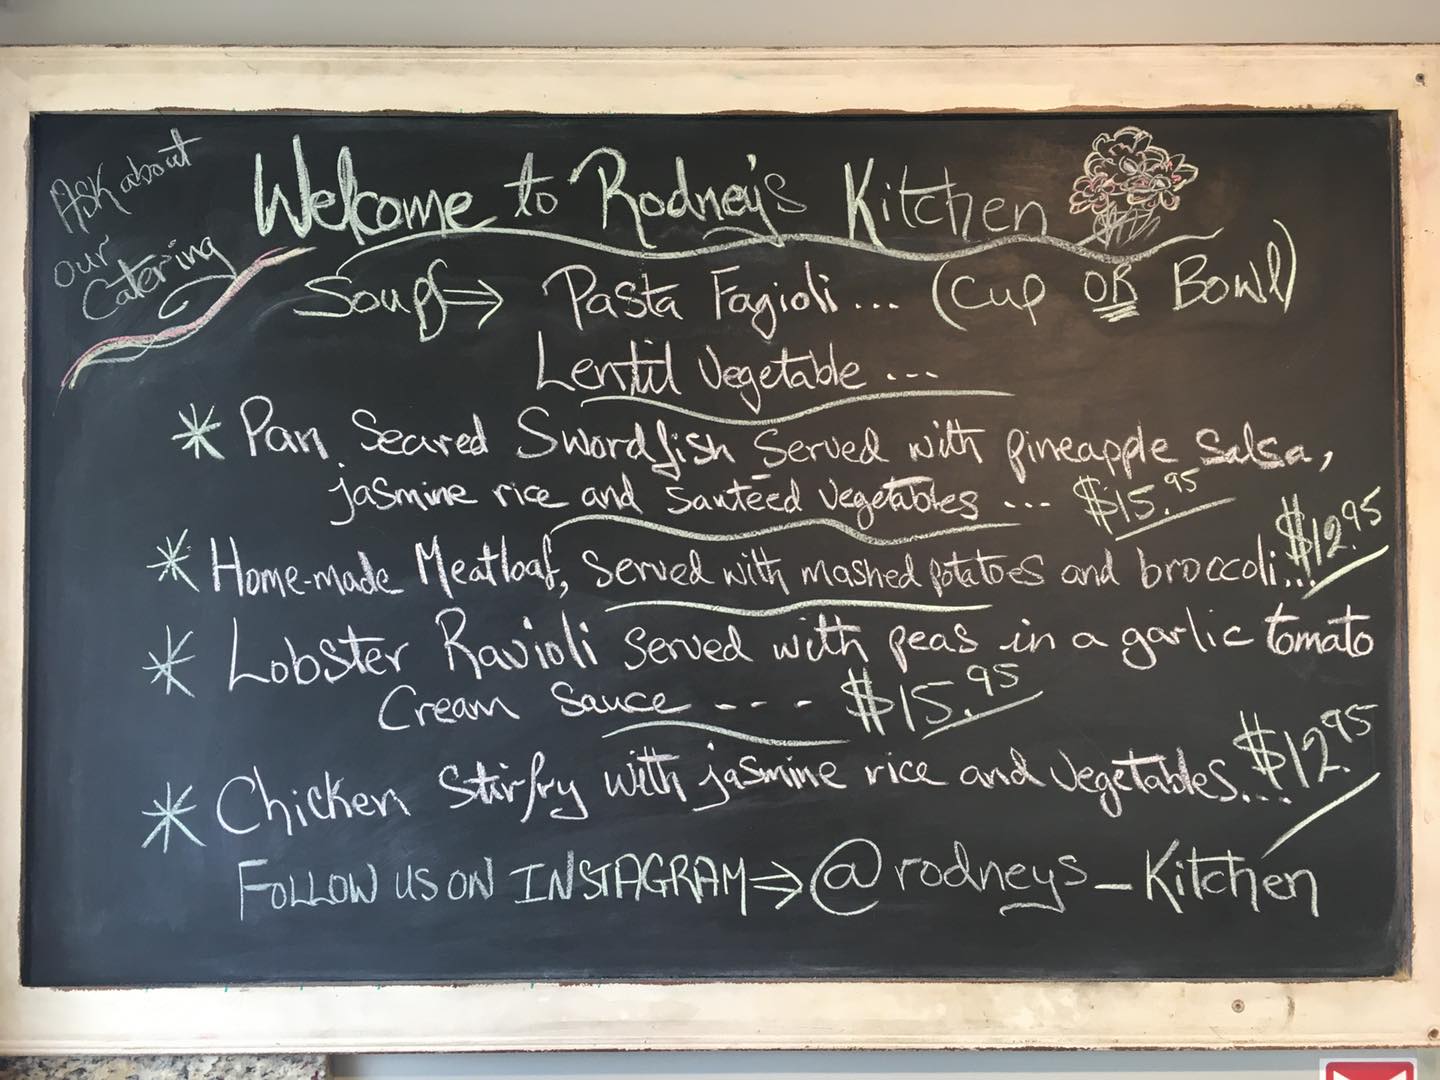 Ask about
our
Catering
Welcome to Rodney's Kitchen
Soup⇒ Pasta Fagioli ... (Cup OR Bowl)
Lentil Vegetable ...
* Pan Seared Swordfish Served with pineapple Salsa,
jasmine rice and Sautéed vegetables ... $15.95
* Home-made Meatloaf, Served with mashed potatoes and broccoli... $12.95
* Lobster Ravioli Served with peas in a garlic tomato
Cream Sauce ---- $15.95
* Chicken Stirfry with jasmine rice and Vegetables... $12.95
FOLLOW US ON INSTAGRAM⇒ @rodneys_Kitchen